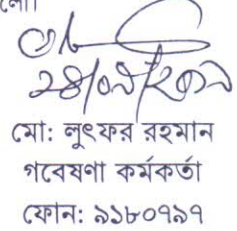 লো।
মো: লুৎফর রহমান
গবেষণা কর্মকর্তা
ফোন: ৯১৮০৭৯৭